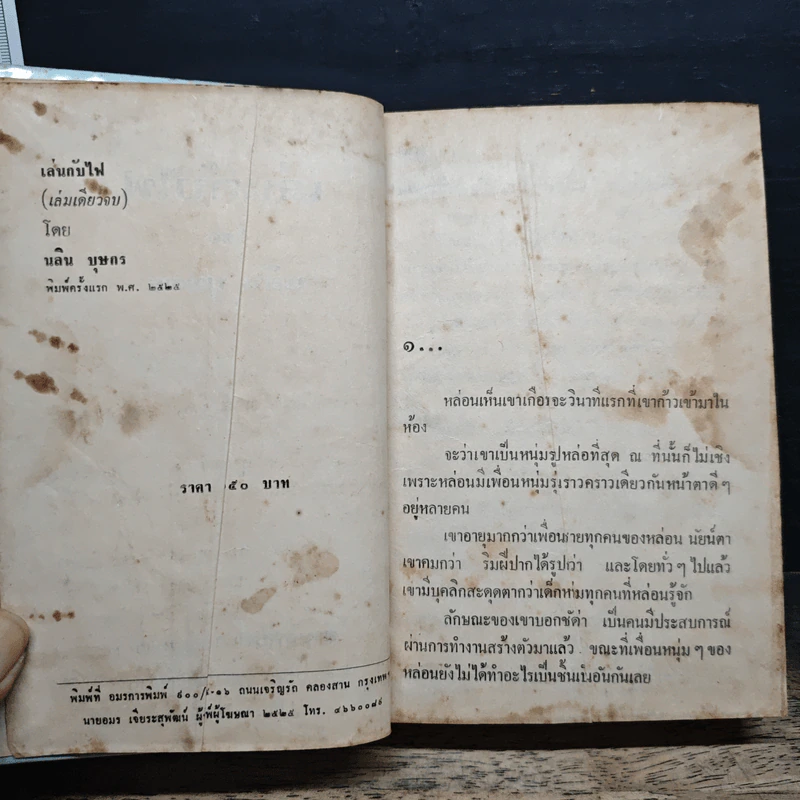 เล่นกับไฟ
(เล่มเดียวจบ)
โดย
นลิน บุษกร
พิมพ์ครั้งแรก พ.ศ. ๒๕๒๕
ราคา ๕๐ บาท
พิมพ์ที่ อมรการพิมพ์ ถนนเจริญรัถ คลองสาน กรุงเทพฯ
นายอมร เจียระสุพัฒน์ ผู้พิมพ์ผู้โฆษณา ๒๕๒๕ โทร.
๑...
หล่อนเห็นเขาเกือบจะวินาทีแรกที่เขาก้าวเข้ามาใน
ห้อง
จะว่าเขาเป็นหนุ่มรูปหล่อที่สุด ณ ที่นั้นก็ไม่เชิง
เพราะหล่อนมีเพื่อนหนุ่มรุ่นราวคราวเดียวกันหน้าตาดีๆ
อยู่หลายคน
เขาอายุมากกว่าเพื่อนชายทุกคนของหล่อน นัยน์ตา
เขาคมกว่า ริมฝีปากได้รูปกว่า และโดยทั่วๆ ไปแล้ว
เขามีบุคลิกสะดุดตากว่าเด็กหนุ่มทุกคนที่หล่อนรู้จัก
ลักษณะของเขาบอกชัดว่า เป็นคนมีประสบการณ์
ผ่านการทำงานสร้างตัวมาแล้ว ขณะที่เพื่อนหนุ่มๆ ของ
หล่อนยังไม่ได้ทำอะไรเป็นชิ้นเป็นอันกันเลย